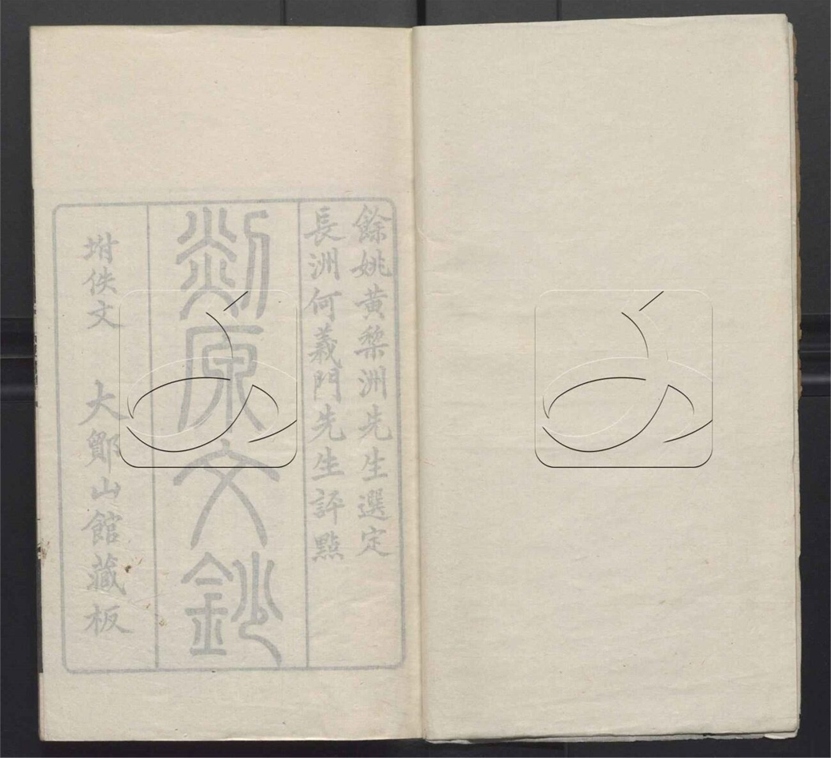 餘姚黃棃洲先生選定
長洲何義門先生評點
剡原文鈔
坿佚文
大鄮山館藏板